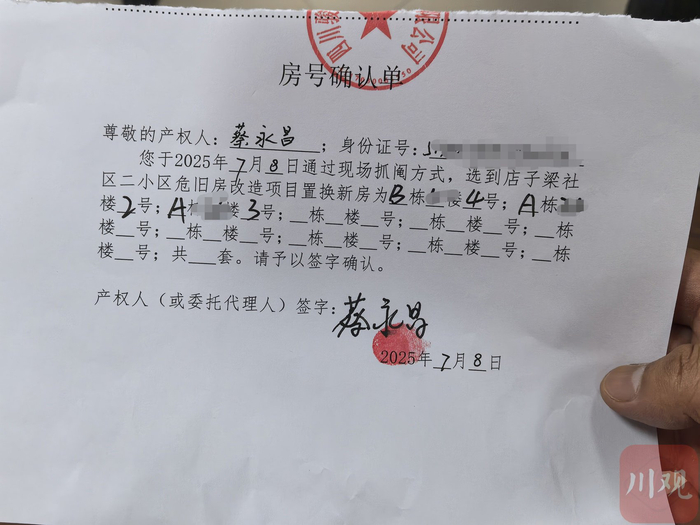 四川
限公司
房号确认单
尊敬的产权人：蔡永昌；身份证号：5
您于2025年7月8日通过现场抓阄方式，选到店子梁社
区二小区危旧房改造项目置换新房为B栋楼4号；A栋
楼2号；A栋楼3号；__栋__楼__号；__栋__楼__号；__栋
楼__号；__栋__楼__号；__栋__楼__号；__栋__楼__号；__栋
楼__号；共___套。请予以签字确认。
产权人（或委托代理人）签字：蔡永昌
2025年7月8日
川观